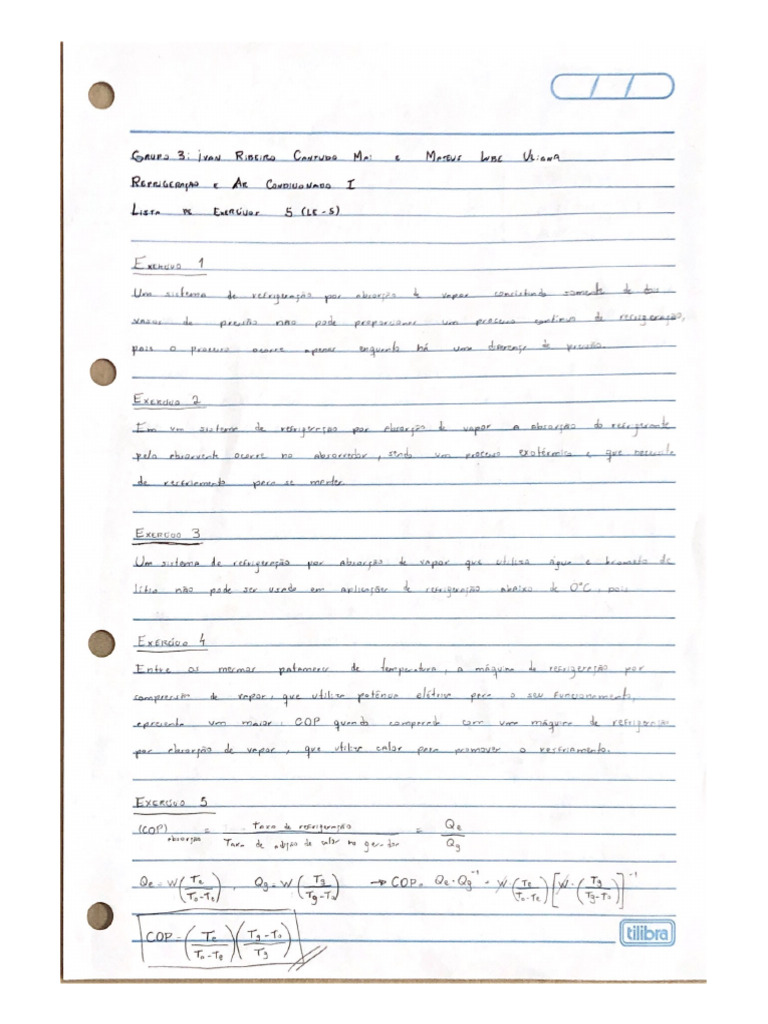 / /
GRUPO 3: IVAN RIBEIRO E MATEUS
REFRIGERAÇÃO E AR CONDICIONADO I
LISTA DE EXERCÍCIOS 5 (LE-5)
EXERCÍCIO 1
Um sistema de refrigeração por absorção de vapor consistindo somente de dois
vasos de pressão não pode proporcionar um processo contínuo de refrigeração,
pois o processo ocorre apenas enquanto há uma diferença de pressão.
EXERCÍCIO 2
Em um sistema de refrigeração por absorção de vapor a absorção do refrigerante
pelo absorvente ocorre no absorvedor, sendo um processo exotérmico e que necessita
de resfriamento para se manter.
EXERCÍCIO 3
Um sistema de refrigeração por absorção de vapor que utiliza água e brometo de
lítio não pode ser usado em aplicações de refrigeração abaixo de 0°C, pois
EXERCÍCIO 4
Entre os mesmos patamares de temperatura, a máquina de refrigeração por
compressão de vapor, que utiliza potência elétrica para o seu funcionamento,
apresenta um maior COP quando comparada com uma máquina de refrigeração
por absorção de vapor, que utiliza calor para promover o resfriamento.
EXERCÍCIO 5
(COP)absorção = Taxa de refrigeração / Taxa de adição de calor no gerador = Qe / Qg
Qe = W(Te / To - Te), Qg = W(Tg / Tg - To) → COP = Qe · Qg⁻¹ = W(Te / To - Te)[W · (Tg / Tg - To)]⁻¹
COP = (Te / To - Te)(Tg - To / Tg)
tilibra